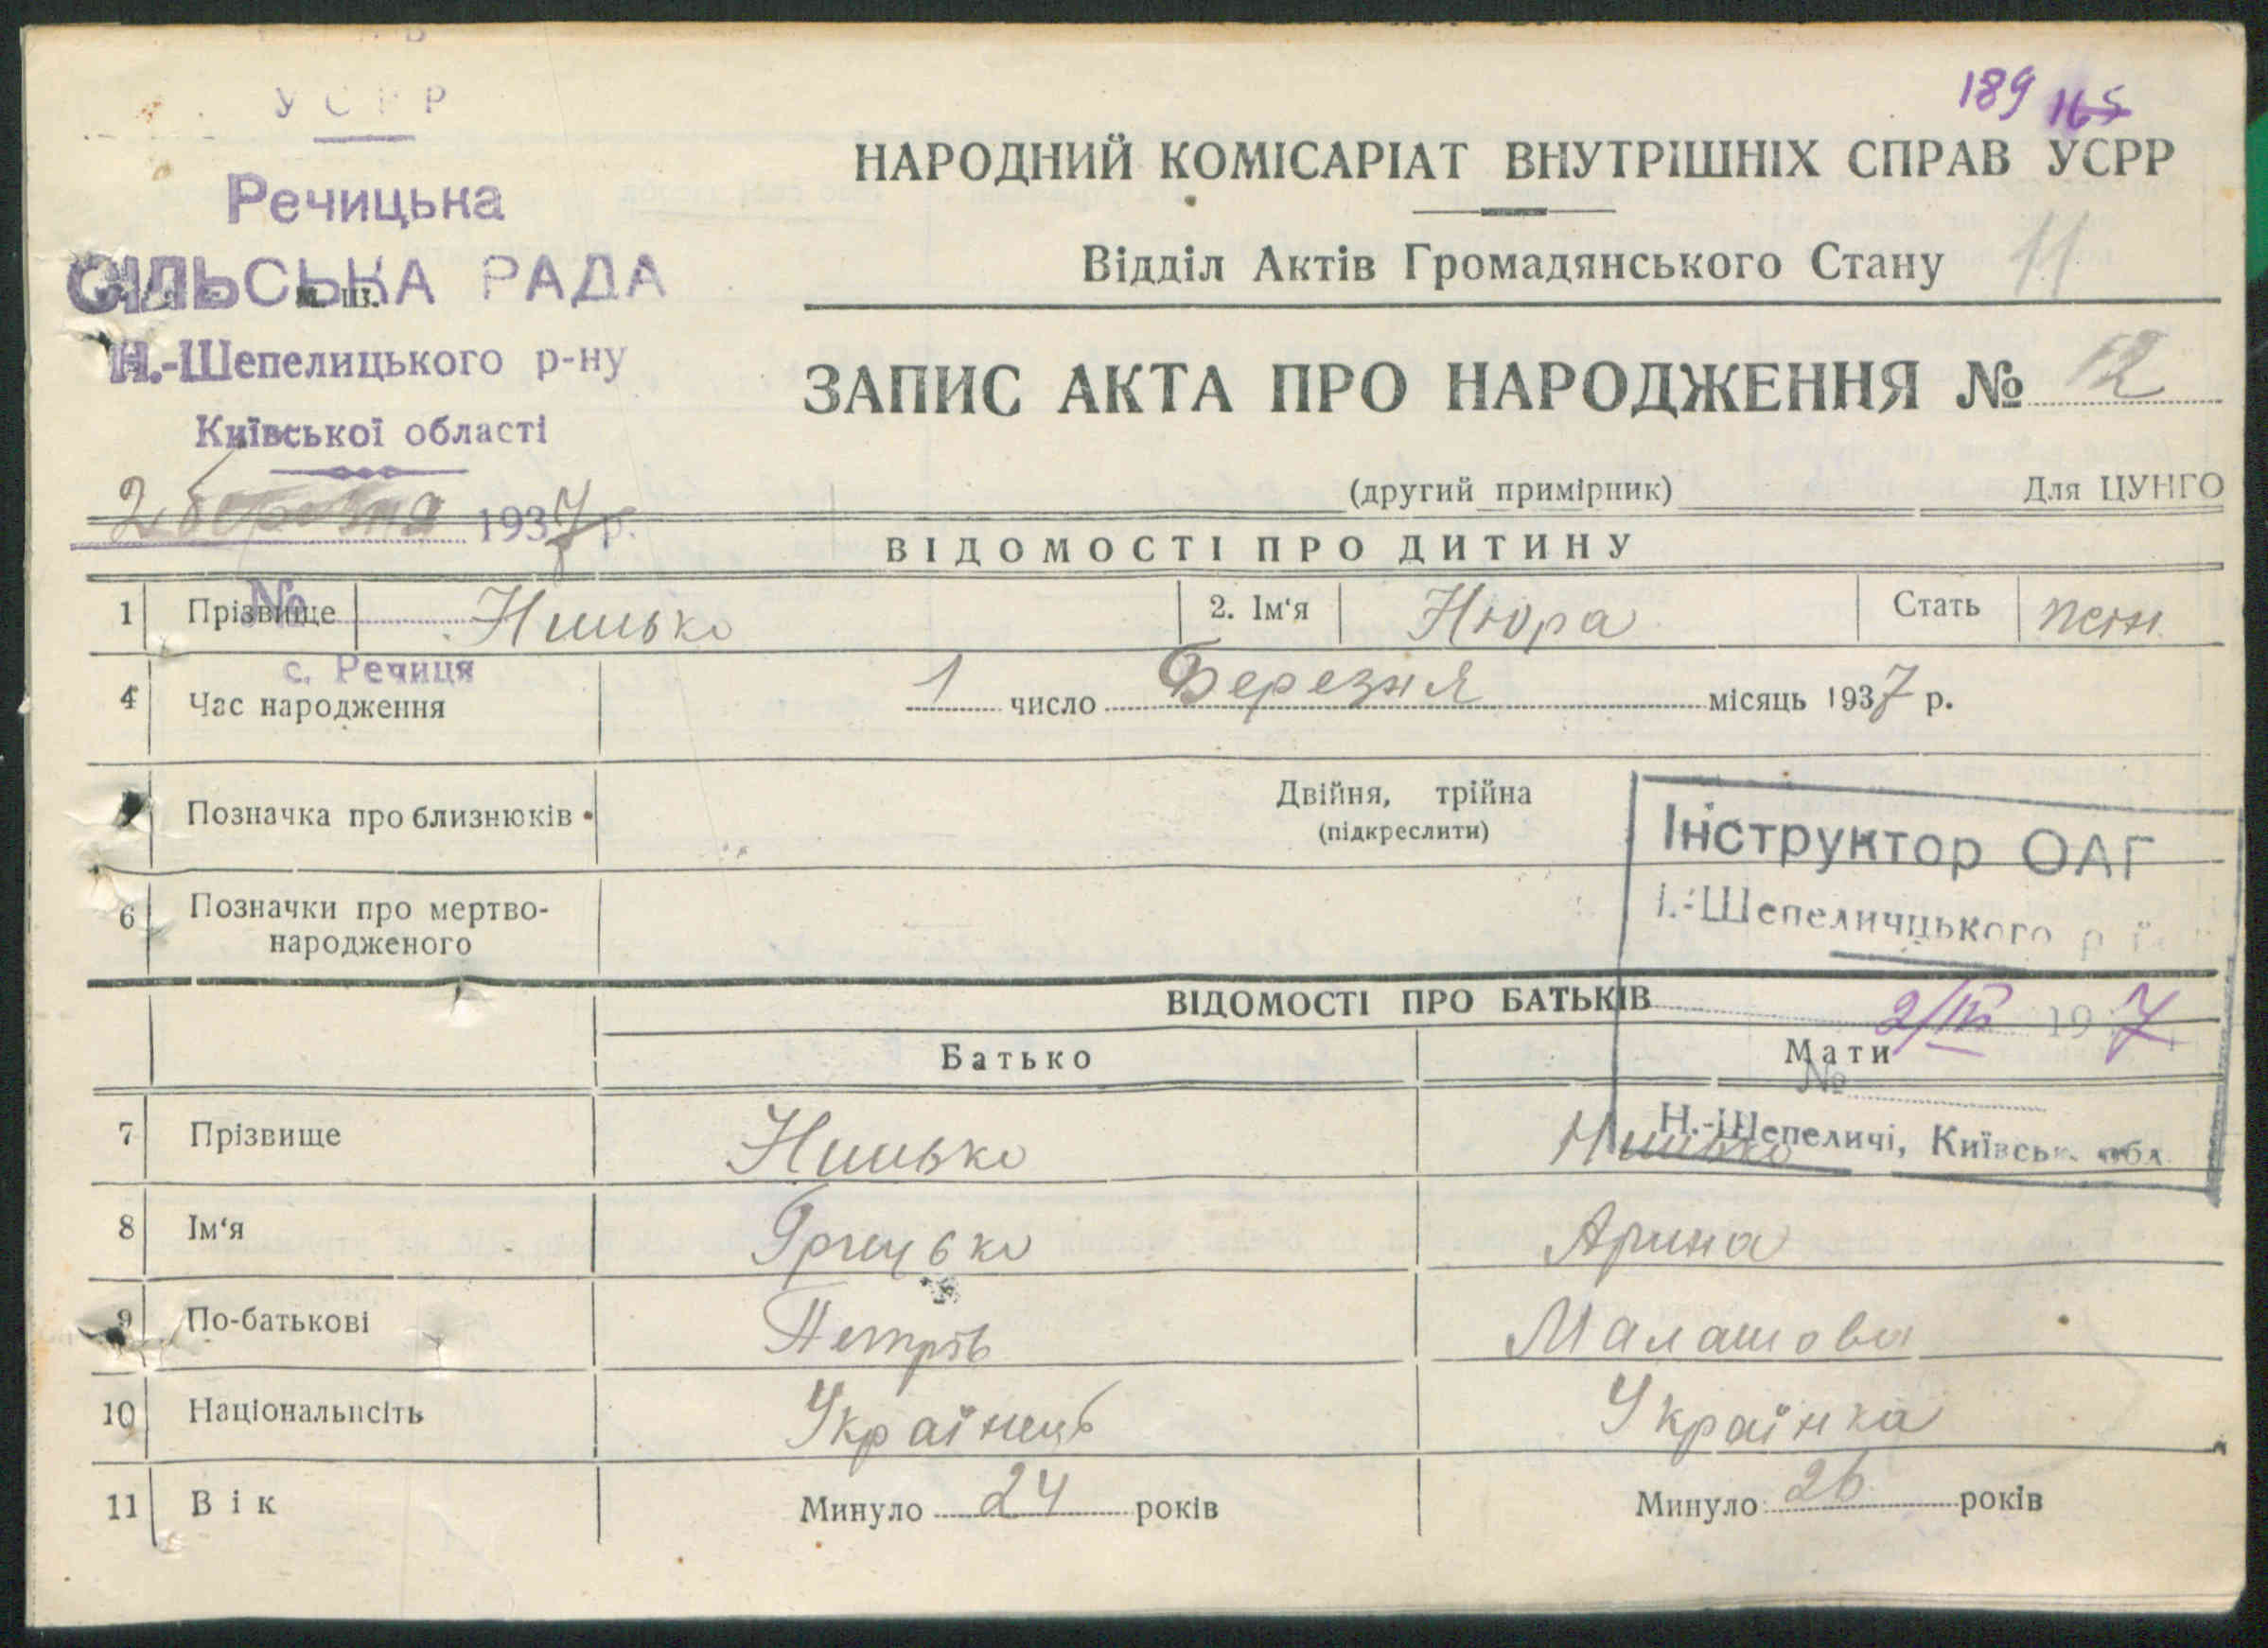 189 165
УСРР
Речицька
СІЛЬСЬКА РАДА
Н.-Шепелицького р-ну
Київської області
2 березня 1937 р.
№
с. Речиця
НАРОДНИЙ КОМІСАРІАТ ВНУТРІШНІХ СПРАВ УСРР
Відділ Актів Громадянського Стану 11
ЗАПИС АКТА ПРО НАРОДЖЕННЯ № 12
(другий примірник) Для ЦУНГО
ВІДОМОСТІ ПРО ДИТИНУ
1 Прізвище Нинько 2. Ім'я Нюра Стать жін
4 Час народження 1 число Березня місяць 1937 р.
Позначка про близнюків Двійня, трійна
(підкреслити)
6 Позначки про мертво-
народженого
Інструктор ОАГ
Шепеличцького
2/IV 1937
№
Н.-Шепеличі, Київськ. обл.
ВІДОМОСТІ ПРО БАТЬКІВ
Батько Мати
7 Прізвище Нинько Нинько
8 Ім'я Грицько Арина
9 По-батькові Петрів Малашова
10 Національнсіть Українець Українка
11 Вік Минуло 24 років Минуло 26 років